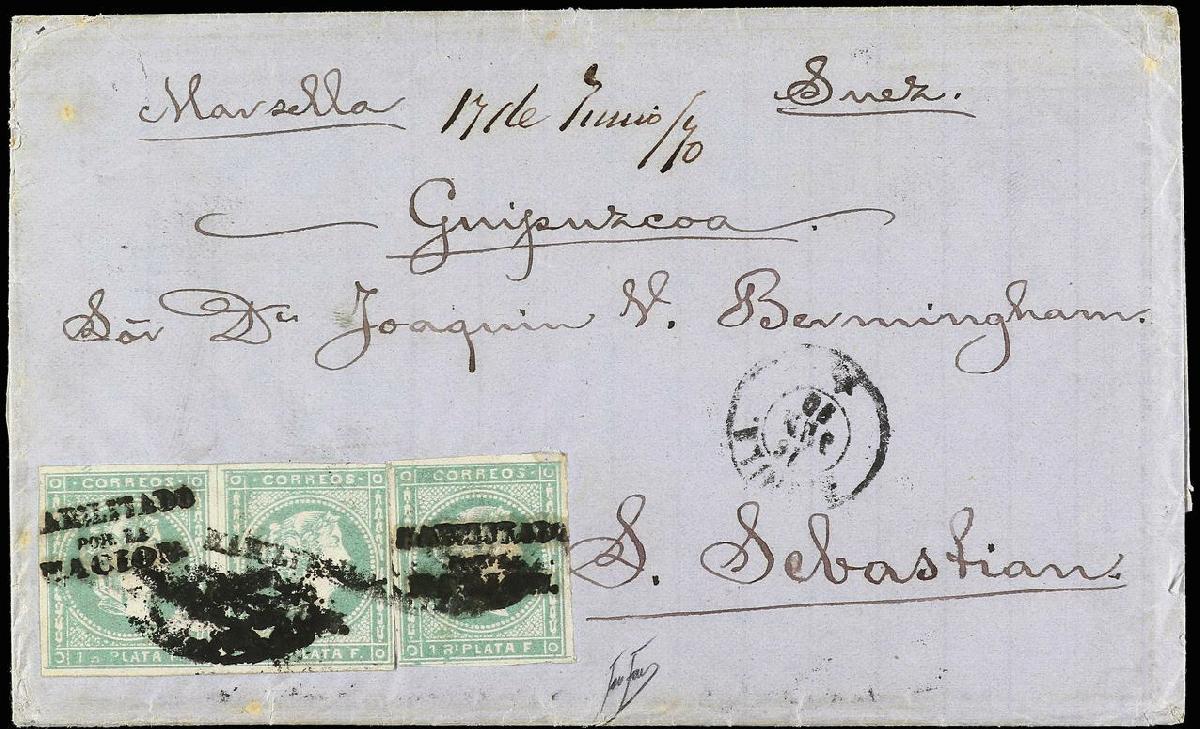 Marsella 17 de Junio /70 Suez.
Guipuzcoa.
Sõr Dn Joaquin V. Bermingham.
S. Sebastian.
CORREOS CORREOS CORREOS
HABILITADO
POR LA
NACION.
HABILITADO
POR LA
NACION.
PLATA F. PLATA F. 1 Rl PLATA F.